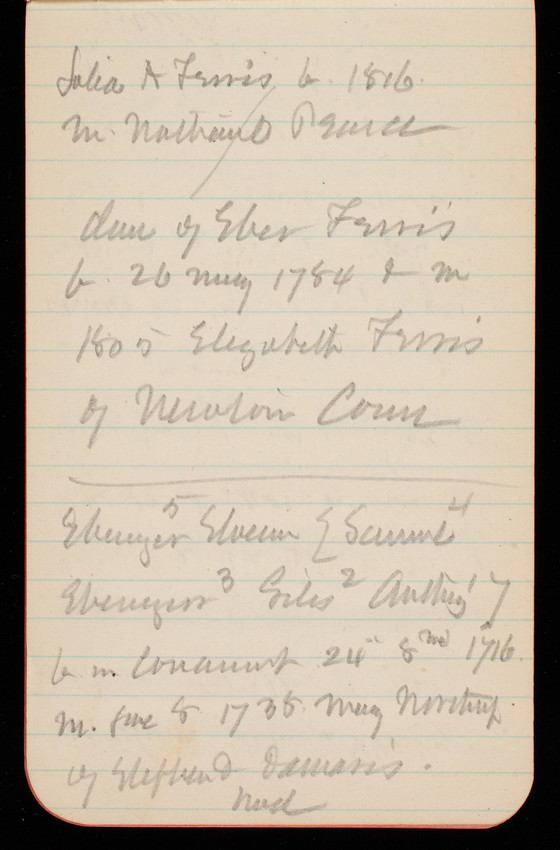 Julia A Ferris b. 1816.
m. Nathan D Pearce
dau of Eber Ferris
b. 26 May 1784 & m
1805 Elizabeth Ferris
of Newtown Conn
Ebenezer⁵ Slocum [Samuel⁴
Ebenezer³ Giles² Anthony¹]
b. in 24" 8ᵐᵒ 1716.
m. 8 1738 Mary Northup
of Stephen & Damaris.